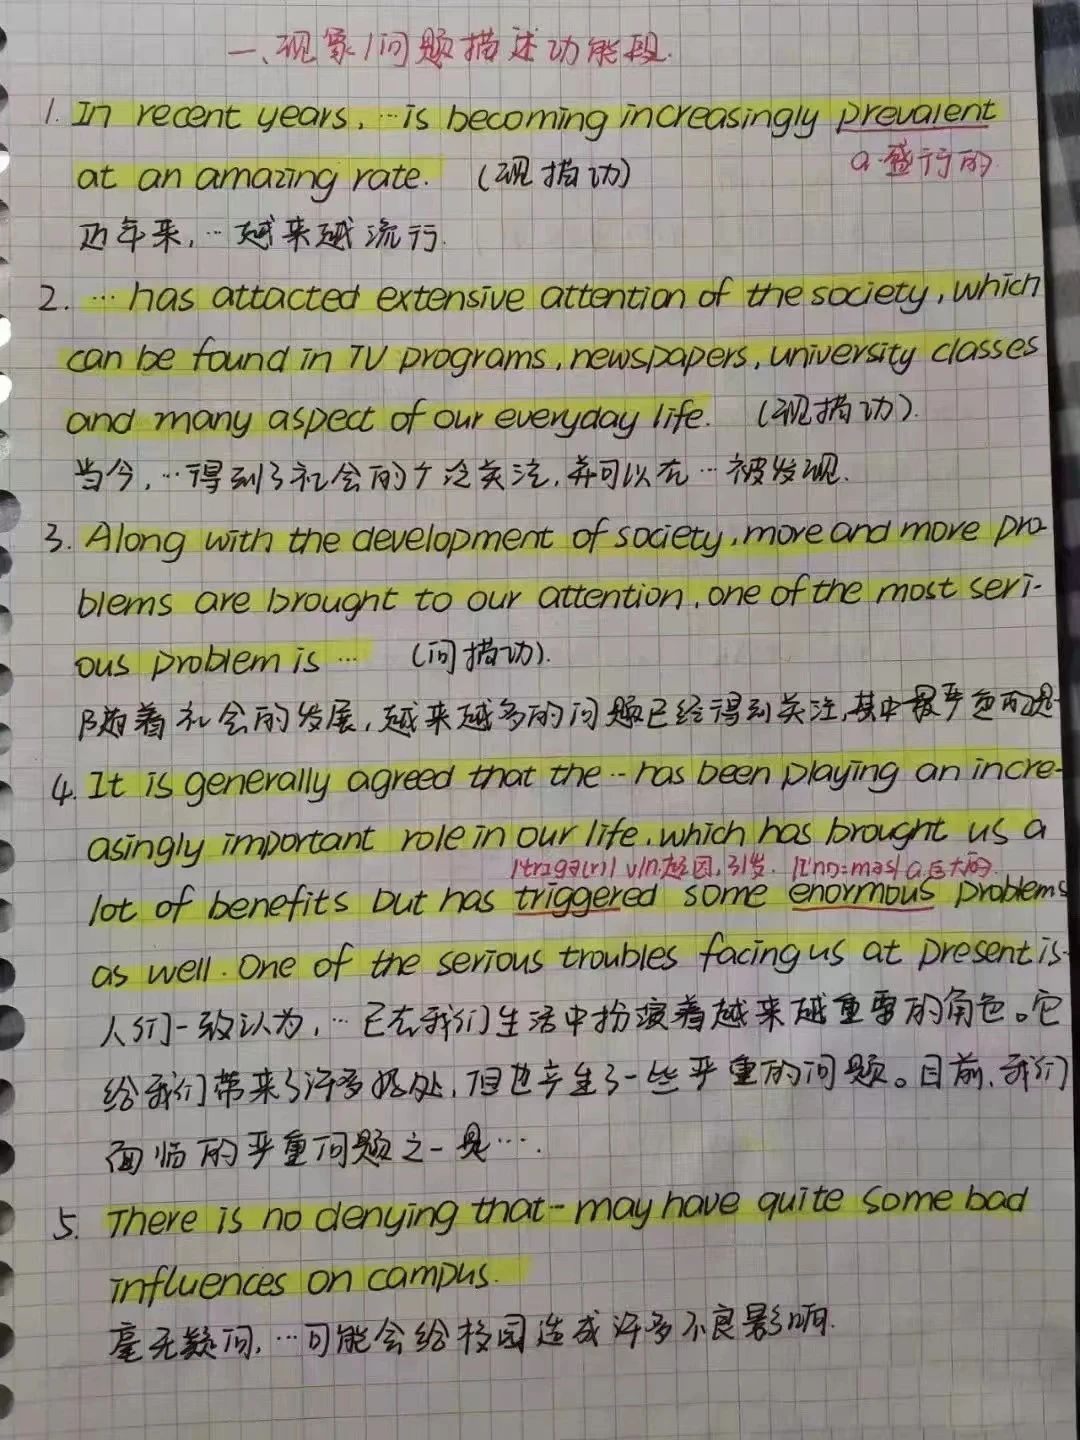 一、现象/问题描述功能段.
1. In recent years, …is becoming increasingly prevalent
a.盛行的
at an amazing rate. (现描功)
近年来,…越来越流行.
2. …has attacted extensive attention of the society, which
can be found in TV programs, newspapers, university classes
and many aspect of our everyday life. (现描功).
当今,…得到了社会的广泛关注,并可以在…被发现.
3. Along with the development of society, more and more pro-
blems are brought to our attention, one of the most seri-
ous problem is … (问描功).
随着社会的发展,越来越多的问题已经得到关注,其中最严重的是
4. It is generally agreed that the …has been playing an incre-
asingly important role in our life, which has brought us a
v/n.起因,引发. a.巨大的.
lot of benefits but has triggered some enormous problems
as well. One of the serious troubles facing us at present is…
人们一致认为,…已在我们生活中扮演着越来越重要的角色。它
给我们带来了许多好处,但也产生了一些严重的问题。目前,我们
面临的严重问题之一是….
5. There is no denying that…may have quite some bad
influences on campus.
毫无疑问,…可能会给校园造成许多不良影响.